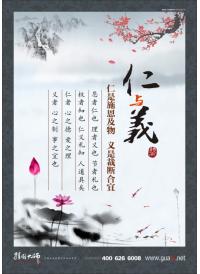 仁与義
仁是施恩及物 义是裁断合宜
恩者仁也 理者义也 节者礼也
权者知也 仁义礼知 人道具矣
仁者 心之德 爱之理
义者 心之制 事之宜也
400 626 6008